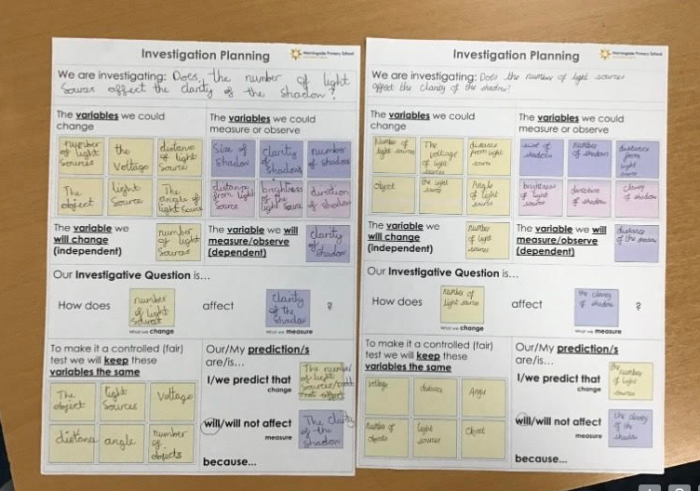 Investigation Planning
Morningside Primary School
We are investigating: Does the number of light
source affect the clarity of the shadow?
The variables we could
change
The variables we could
measure or observe
number
of light
sources
the
Voltage
distance
of light
source
Size of
shadow
Clarity
of
shadow
number
of shadows
The
object
light
source
The
angle of
light source
distance
from light
source
brightness
of the
light source
direction
of shadow
The variable we
will change
(independent)
number
of light
sources
The variable we will
measure/observe
(dependent)
clarity
of
shadow
Our Investigative Question is...
How does
number
of light
sources
What we change
affect
clarity
of the
shadow
What we measure
?
To make it a controlled (fair)
test we will keep these
variables the same
The
object
light
sources
Voltage
distance
angle
number
of
objects
Our/My prediction/s
are/is...
I/we predict that
The number
of light
change
will/will not affect
The clarity
of the
shadow
measure
because...
Investigation Planning
Morningside Primary School
We are investigating: Does the number of light sources
affect the clarity of the shadow?
The variables we could
change
The variables we could
measure or observe
Number of
light source
The
voltage
of light
distance
from light
source
size of
shadow
number
of shadows
distance
from
light
source
object
the light
source
Angle
of light
source
brightness
of light
source
direction
of shadow
clarity
of shadow
The variable we
will change
(independent)
number
of light
sources
The variable we will
measure/observe
(dependent)
Our Investigative Question is...
How does
number of
light source
What we change
affect
the clarity
of shadow
What we measure
?
To make it a controlled (fair)
test we will keep these
variables the same
voltage
distance
Angle
number of
objects
light
source
object
Our/My prediction/s
are/is...
I/we predict that
the
number
of light
source
change
will/will not affect
the clarity
of the
shadow
measure
because...